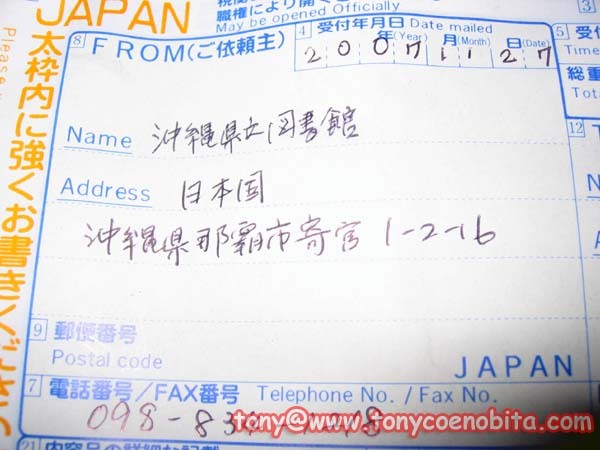 JAPAN
職権により開く
May be opened Officially
太枠内に強くお書きくださ
Please
8 FROM(ご依頼主)
4 受付年月日 Date mailed
年(Year) 月(Month) 日(Date)
2007 11 27
5 受付
Time
総重
Total
Name 沖縄県立図書館
12
Address 日本国
沖縄県那覇市寄宮 1-2-16
9 郵便番号
Postal code
JAPAN
7 電話番号/FAX番号 Telephone No. / Fax No.
098-83
tony@www.tonycoenobita.com
21